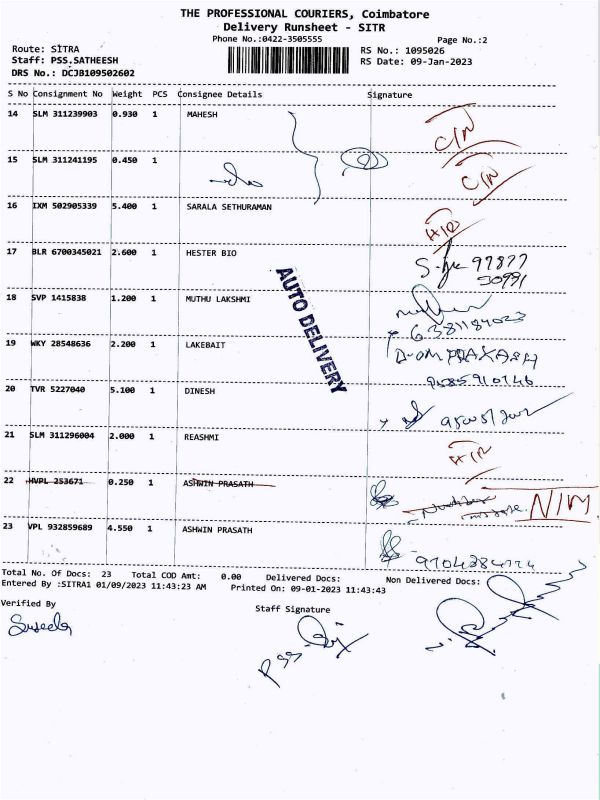 THE PROFESSIONAL COURIERS, Coimbatore
Delivery Runsheet - SITR
Phone No.:0422-3505555
Page No.:2
Route: SITRA
RS No.: 1095026
Staff: PSS.SATHEESH
RS Date: 09-Jan-2023
DRS No.: DCJB109502602
S No Consignment No Weight PCS Consignee Details Signature
14 SLM 311239903 0.930 1 MAHESH C/N
15 SLM 311241195 0.450 1 C/N
16 IXM 502905339 5.400 1 SARALA SETHURAMAN
17 BLR 6700345021 2.600 1 HESTER BIO 97877
30991
AUTO DELIVERY
18 SVP 1415838 1.200 1 MUTHU LAKSHMI
6381184023
19 WKY 28548636 2.200 1 LAKEBAIT
20 TVR 5227040 5.100 1 DINESH
21 SLM 311296004 2.000 1 REASHMI
22 HVPL 253671 0.250 1 ASHWIN PRASATH N/M
23 VPL 932859689 4.550 1 ASHWIN PRASATH
Total No. Of Docs: 23 Total COD Amt: 0.00 Delivered Docs: Non Delivered Docs:
Entered By :SITRA1 01/09/2023 11:43:23 AM Printed On: 09-01-2023 11:43:43
Verified By
Staff Signature